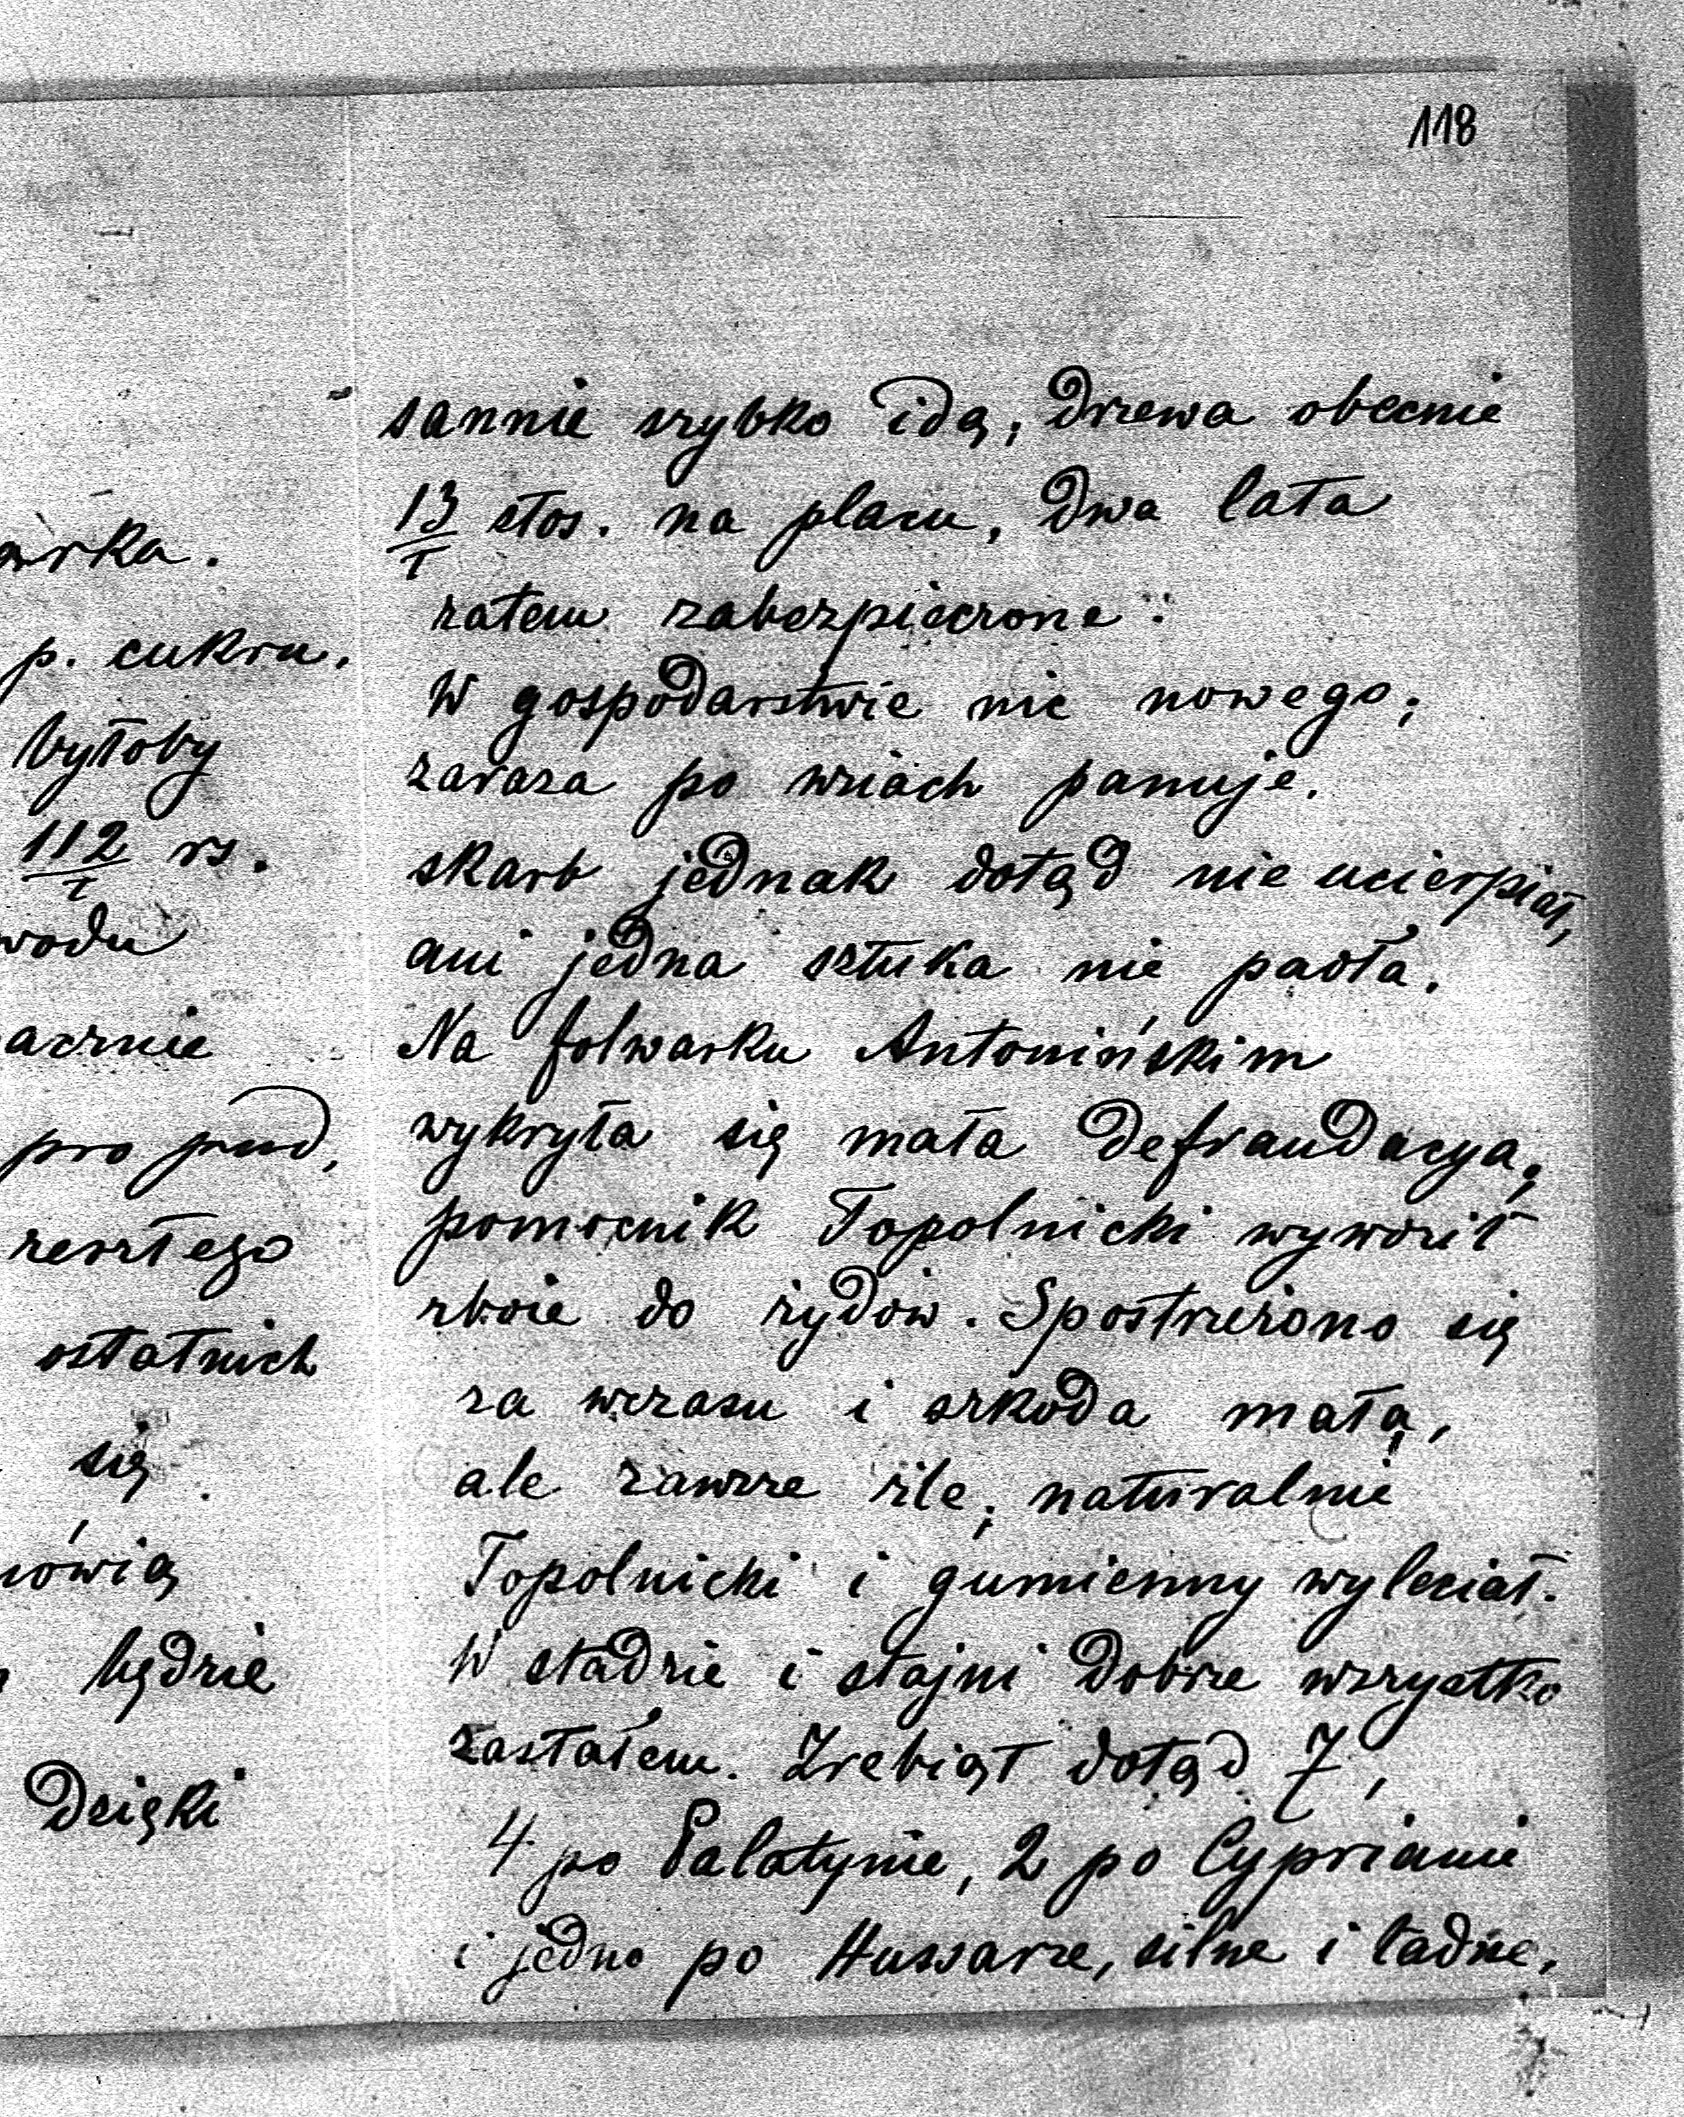 118
arka.
p. cukru.
byłoby
112/T rs.
wodu
acznie
pro pud,
zeszłego
ostatnich
się.
mówią
będzie
Dzięki
sannie szybko idą; drzewa obecnie
13/T stos. na placu, dwa lata
zatem zabezpieczone.
W gospodarstwie nic nowego;
zaraza po wsiach panuje.
skarb jednak dotąd nie ucierpiał,
ani jedna sztuka nie padła.
Na folwarku Antonińskim
wykryła się mała defraudacya,
pomocnik Topolnicki wywoził
zboże do żydów. Spostrzeżono się
za wczasu i szkoda mała,
ale zawsze źle; naturalnie
Topolnicki i gumienny wyleciał.
W stadzie i stajni dobrze wszystko
zastałem. Źrebiąt dotąd 7,
4 po Palatynie, 2 po Cyprianie
i jedno po Huswarze, silne i ładne.